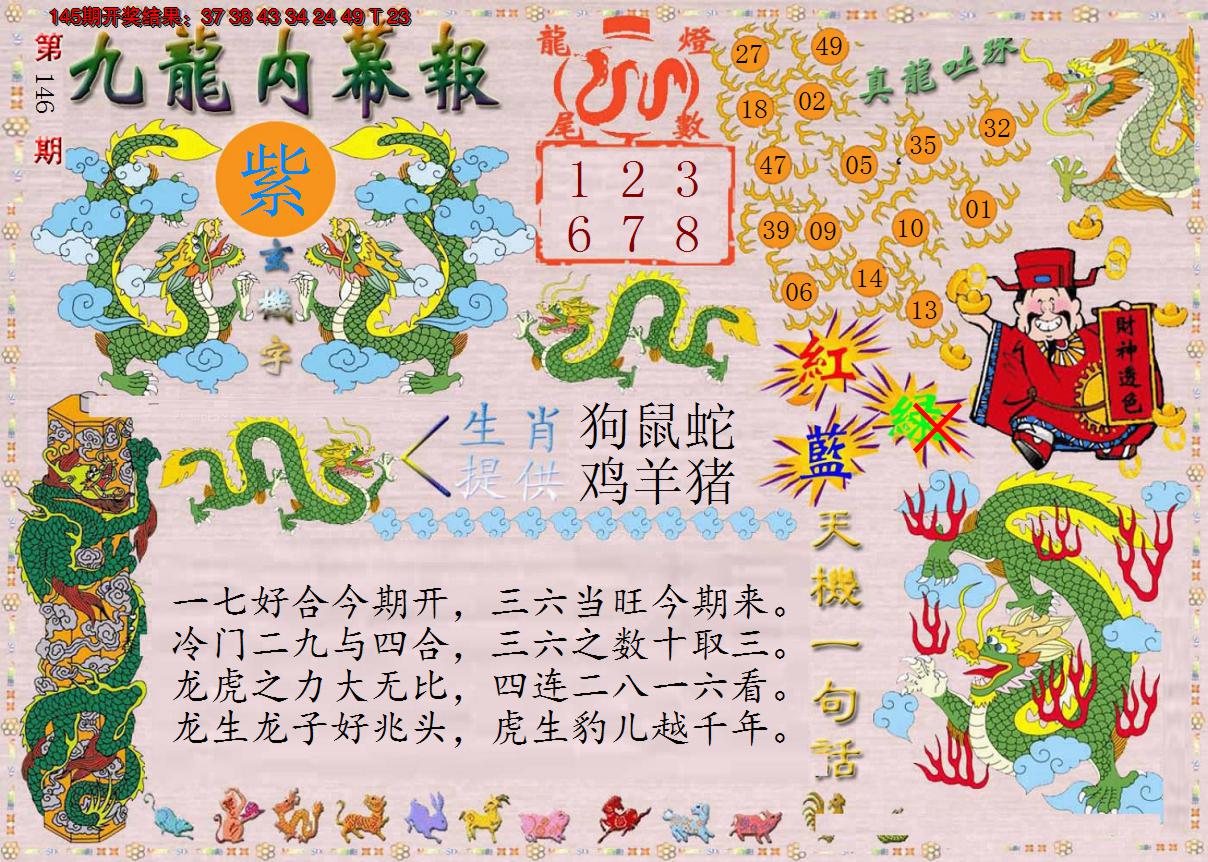 145期开奖结果：37 38 43 34 24 49 T 23
第146期
九龍内幕報
紫
玄機字
龍燈
尾數
1 2 3
6 7 8
真龍吐珠
27 49
18 02
35 32
47 05
39 09 10 01
06 14 13
財神透色
紅
綠
藍
生肖 狗鼠蛇
提供 鸡羊猪
天機一句話
一七好合今期开，三六当旺今期来。
冷门二九与四合，三六之数十取三。
龙虎之力大无比，四连二八一六看。
龙生龙子好兆头，虎生豹儿越千年。